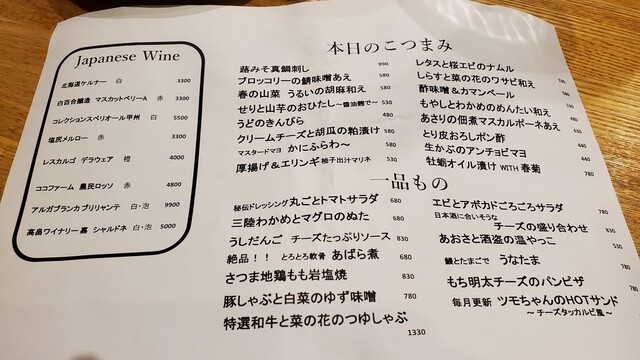 Japanese Wine
北海道ケルナー 白 3300
白百合醸造 マスカットベリーA 赤 3300
コレクションスペリオール甲州 白 5500
塩尻メルロー 赤 3300
レスカルゴ デラウェア 橙 4000
ココファーム 農民ロッソ 赤 4800
アルガブランカブリリャンテ 白・泡 9900
高畠ワイナリー嘉 シャルドネ 白・泡 5000
本日のこつまみ
蕗みそ真鯛刺し 990
ブロッコリーの鯖味噌あえ 580
春の山菜 うるいの胡麻和え 580
せりと山芋のおひたし~醤油麹で~ 530
うどのきんぴら 480
クリームチーズと胡瓜の粕漬け 580
マスタードマヨ かにふらわ~ 580
厚揚げ&エリンギ 柚子出汁マリネ 530
レタスと桜エビのナムル
しらすと菜の花のワサビ和え 530
酢味噌&カマンベール 580
もやしとわかめのめんたい和え 530
あさりの佃煮マスカルポーネあえ 630
とり皮おろしポン酢 440
生かぶのアンチョビマヨ 440
牡蛎オイル漬け WITH 春菊 780
一品もの
秘伝ドレッシング 丸ごとトマトサラダ 680
三陸わかめとマグロのぬた 680
うしだんご チーズたっぷりソース 830
絶品!! とろとろ軟骨 あばら煮 680
さつま地鶏もも岩塩焼 830
豚しゃぶと白菜のゆず味噌 780
特選和牛と菜の花のつゆしゃぶ 1330
エビとアボカドごろごろサラダ 780
日本酒に合いそうな
チーズの盛り合わせ 830
あおさと酒盗の温やっこ 530
鰻とたまごで うなたま 780
もち明太チーズのパンピザ 780
毎月更新 ツモちゃんのHOTサンド 780
~チーズタッカルビ風~